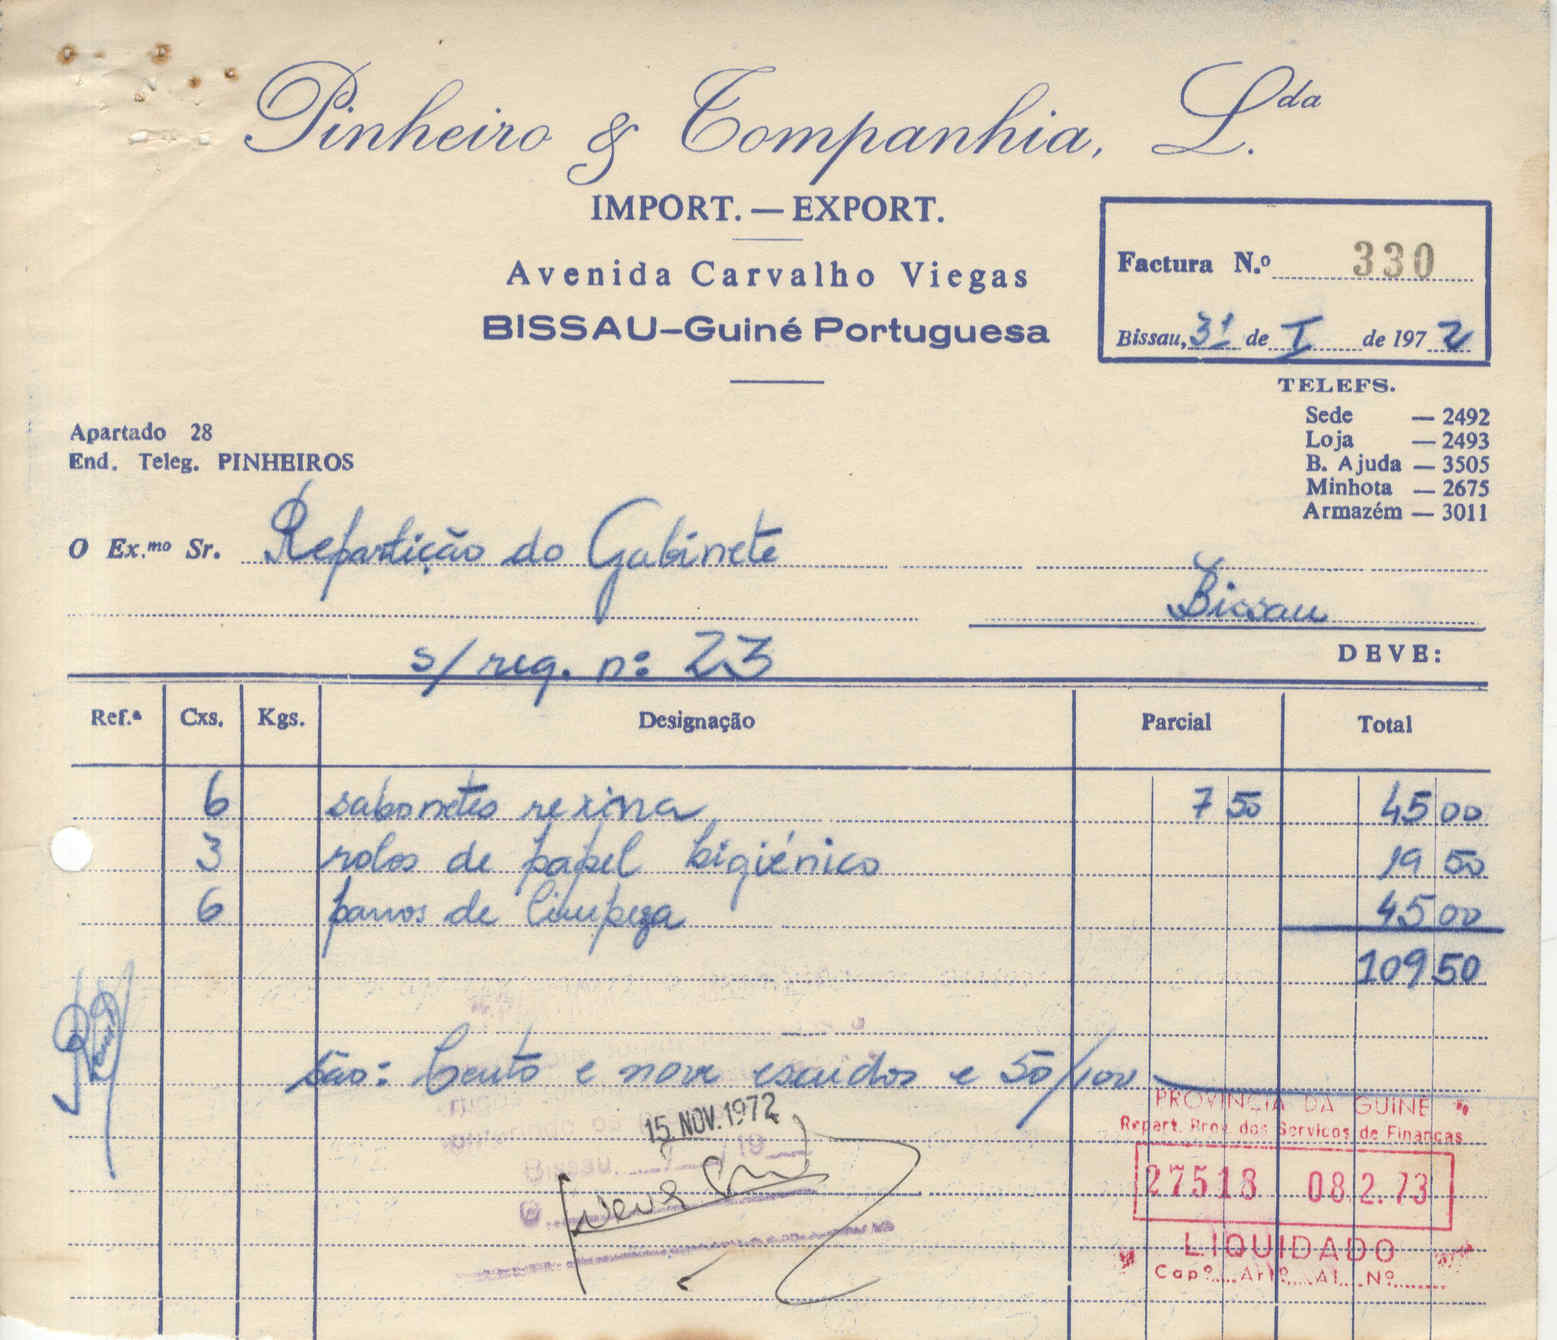 Pinheiro & Companhia, L.da
IMPORT. — EXPORT.
Avenida Carvalho Viegas
BISSAU–Guiné Portuguesa
Factura N.º 330
Bissau, 31 de I de 1972
TELEFS.
Sede — 2492
Loja — 2493
B. Ajuda — 3505
Minhota — 2675
Armazém — 3011
Apartado 28
End. Teleg. PINHEIROS
O Ex.mo Sr. Repartição do Gabinete
Bissau
s/ req. nº 23
DEVE:
Ref.ª Cxs. Kgs. Designação Parcial Total
6 sabonetes rexina 7 50 45 00
3 rolos de papel higiénico 19 50
6 panos de limpeza 45 00
109 50
São: Cento e nove escudos e 50/100
15. NOV. 1972
PROVINCIA DA GUINÉ
Repart. Prov. dos Serviços de Finanças
27518 08 2.73
LIQUIDADO
Capº Artº Al Nº